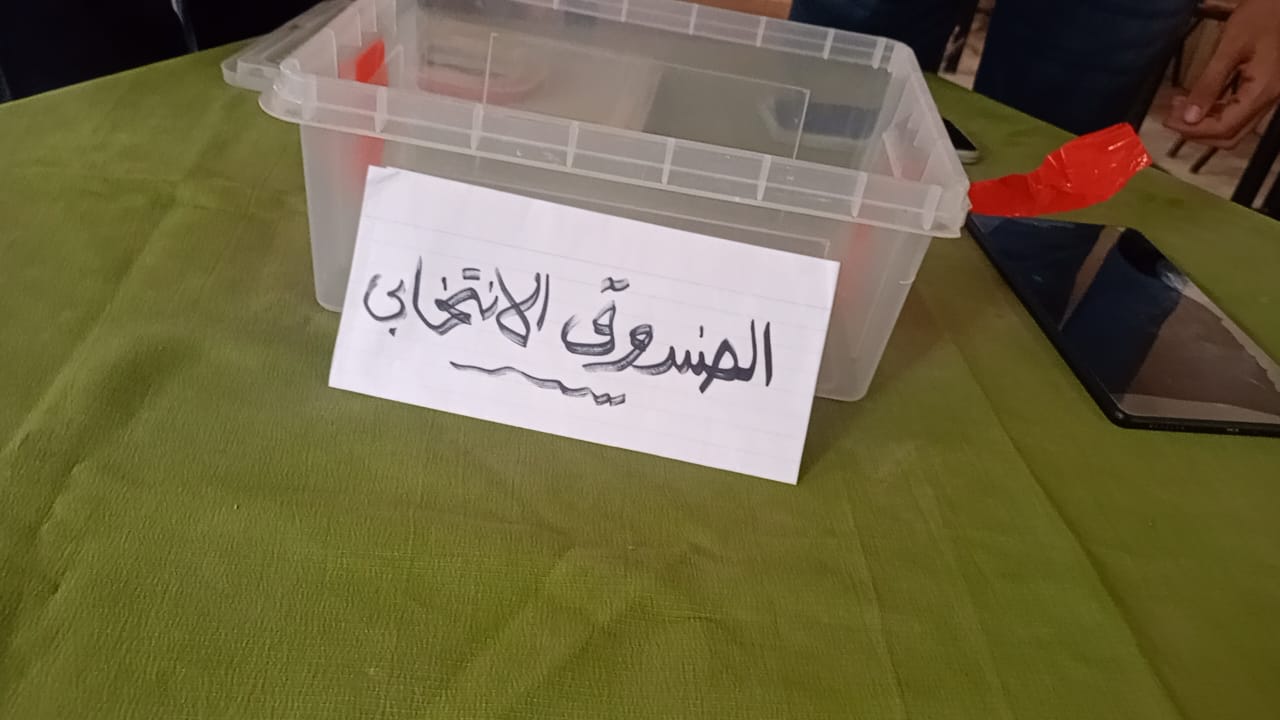 الصندوق الانتخابي